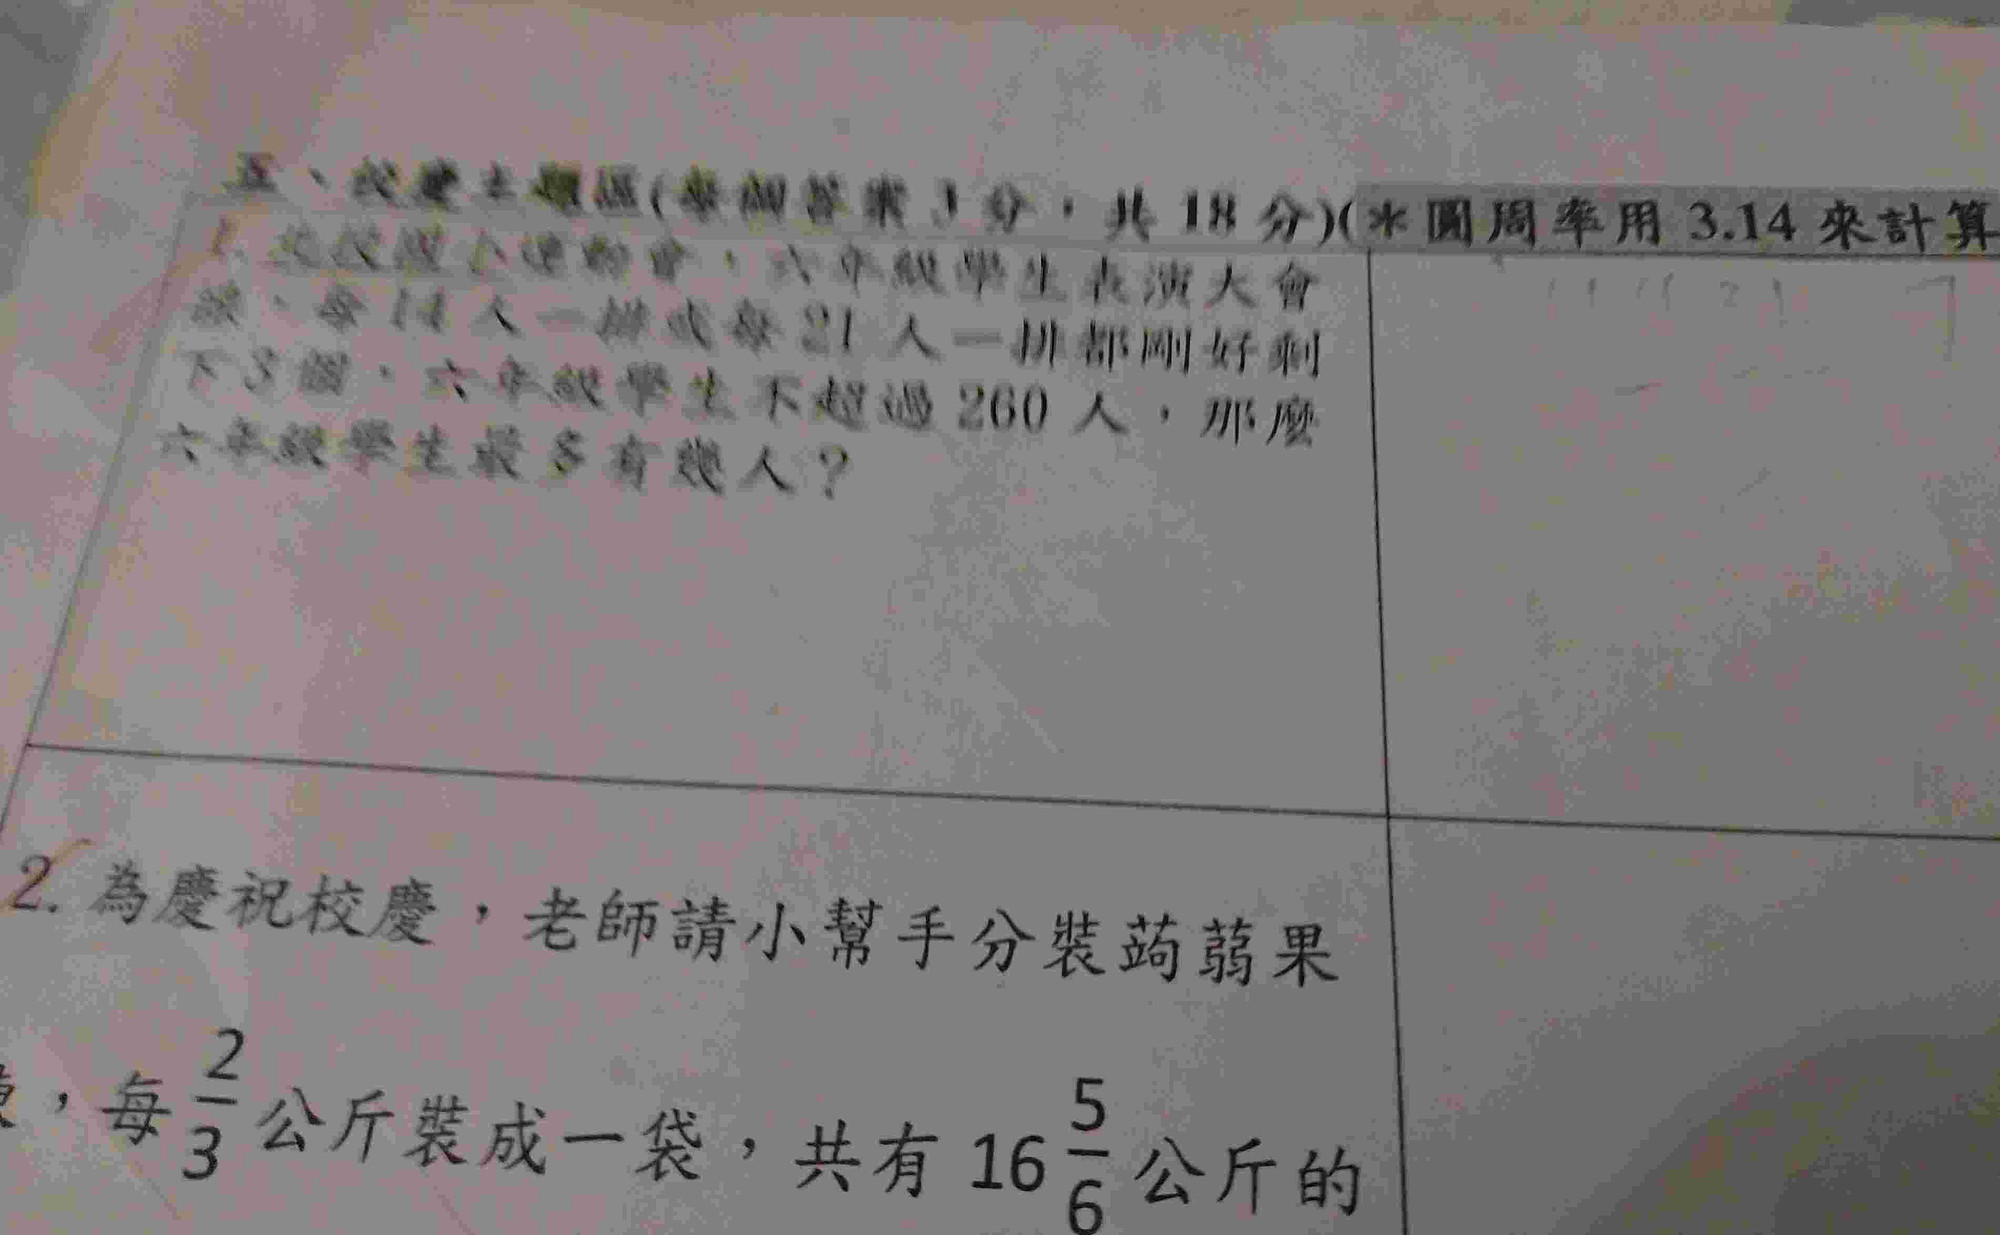 五、校慶主題區(每個答案3分，共18分)(※圓周率用3.14來計算
1. 校園運動會，六年級學生表演大會
，每14人一排或每21人一排都剛好剩
下3個，六年級學生不超過260人，那麼
六年級學生最多有幾人？
2. 為慶祝校慶，老師請小幫手分裝蒟蒻果
，每2/3公斤裝成一袋，共有16 5/6公斤的